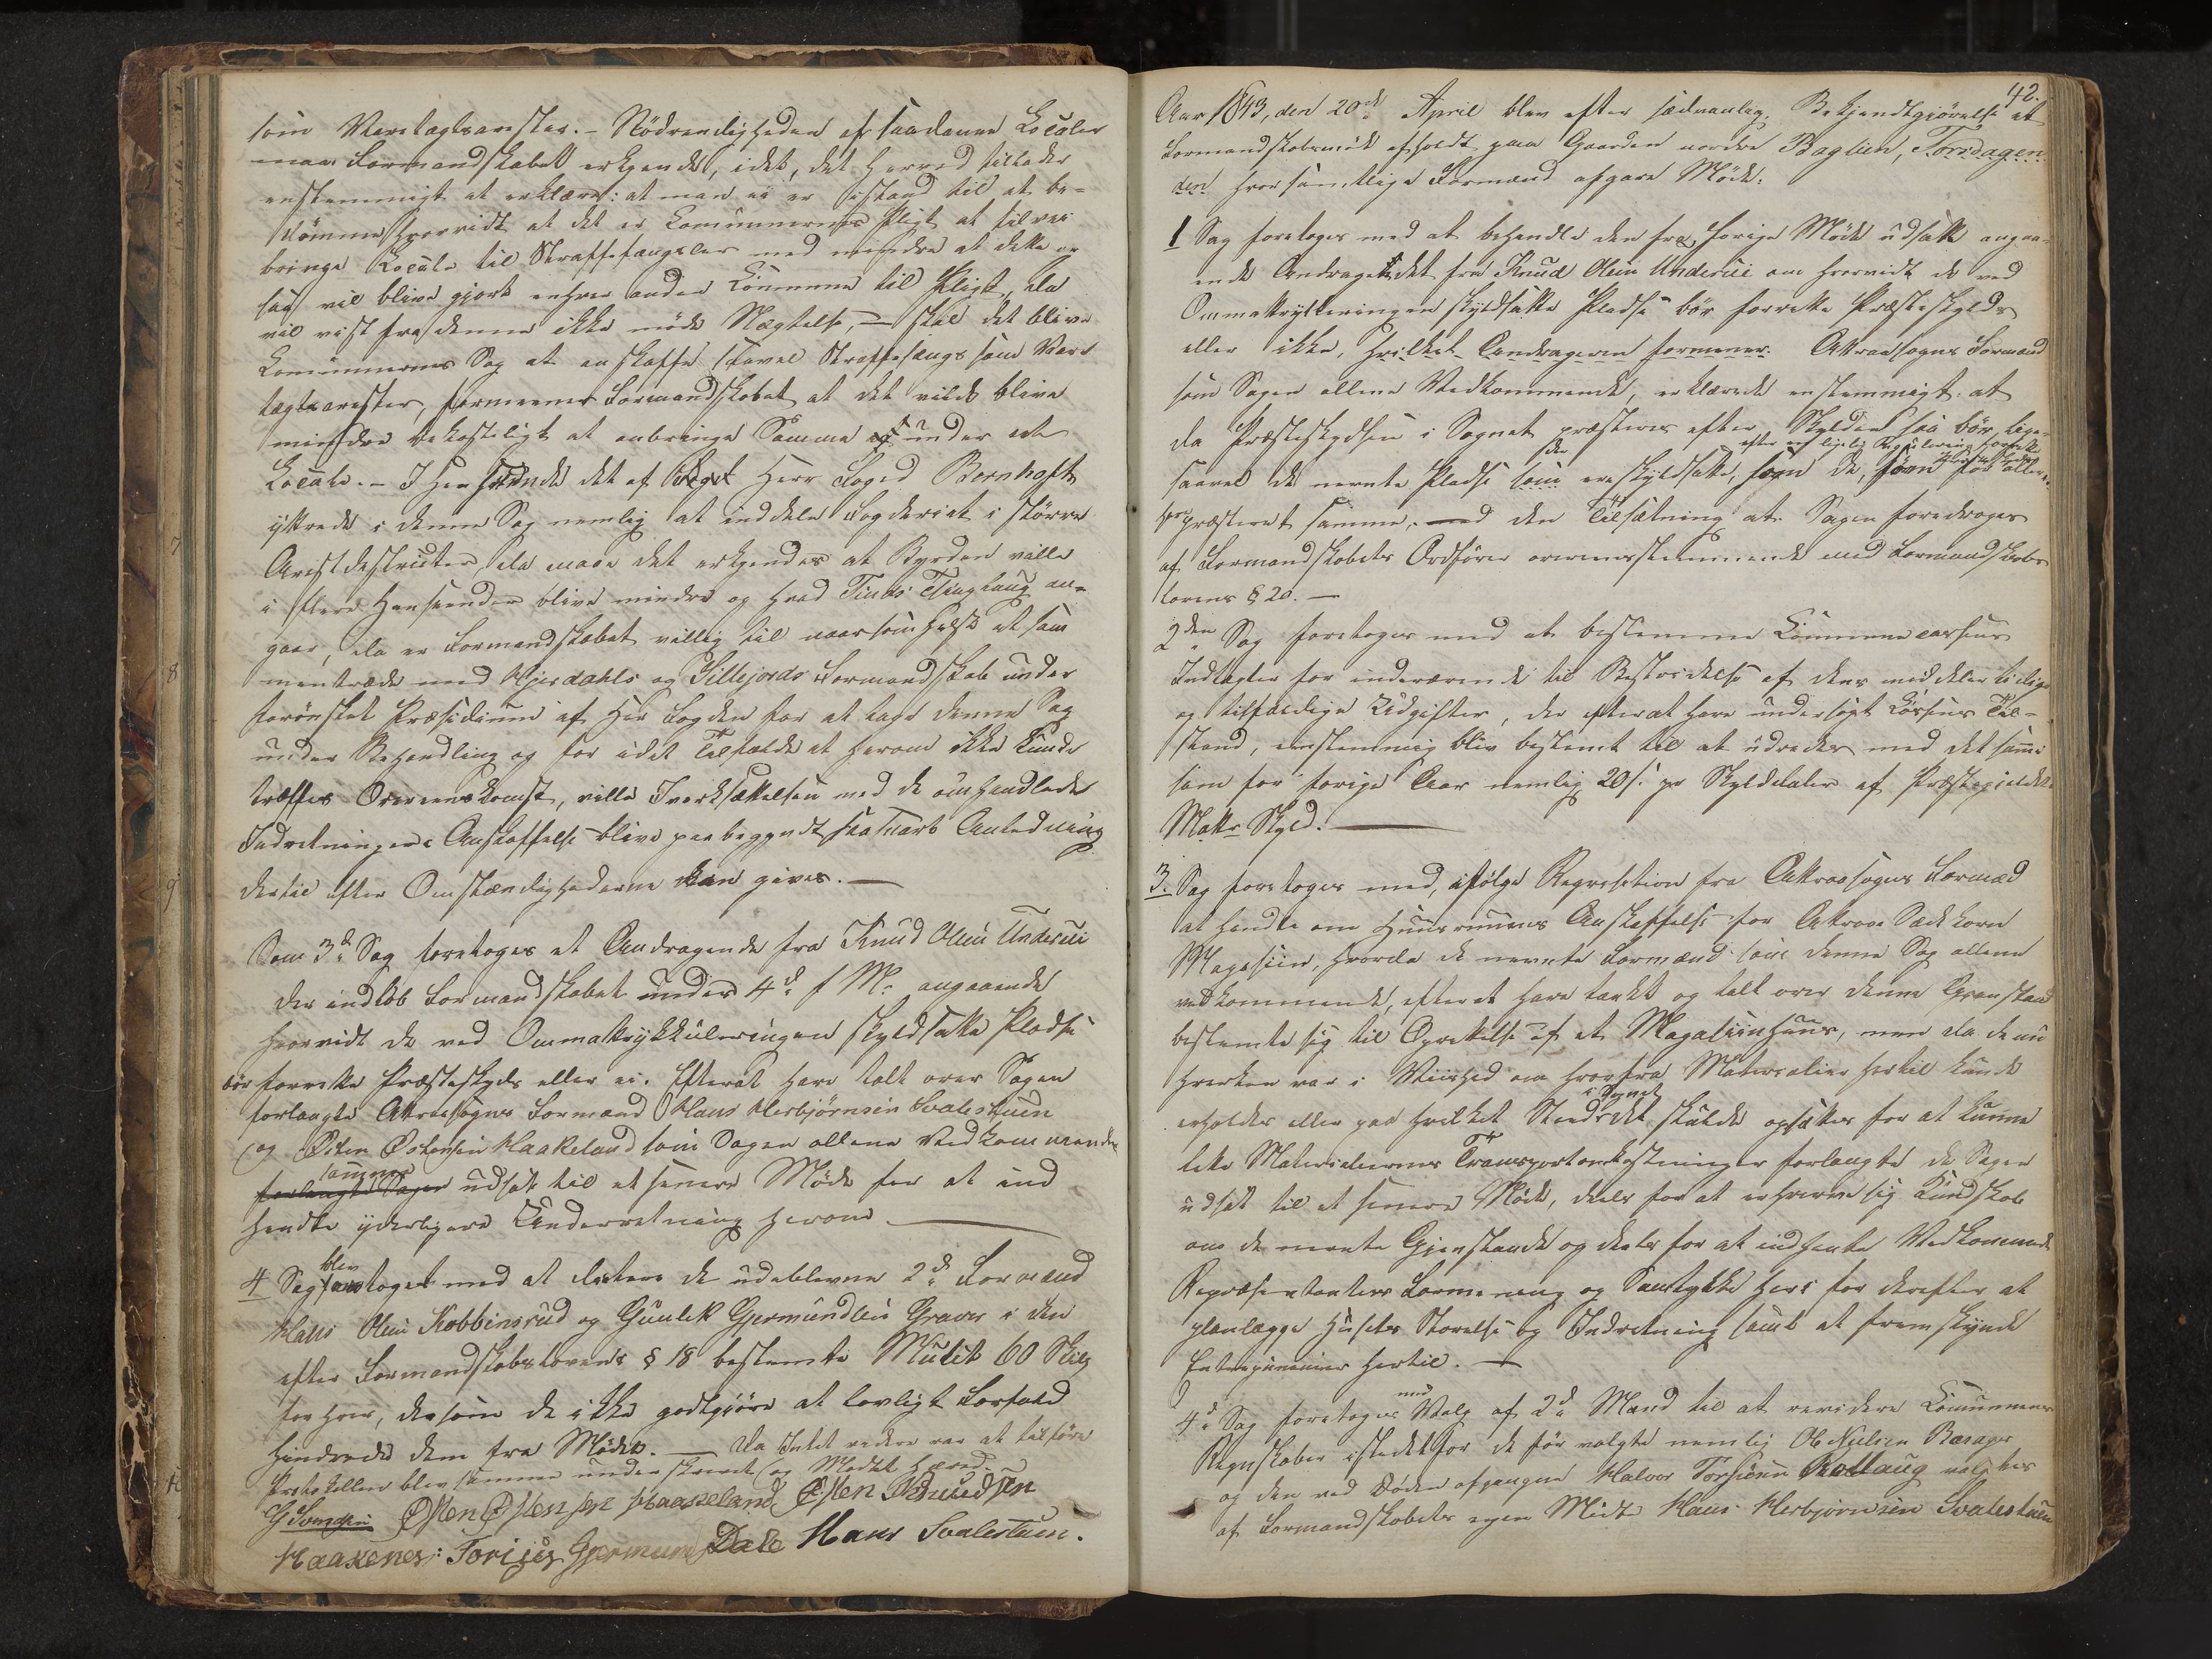 som Varetægtsarester. - Nödvendigheden af saadanne Localer
maa Formandskabet erkjende, idet, det herved tillader
enstemmigt at erklære: at man ei er istand til at be-
dömme hvorvidt at det er Communernes Pligt at tilvei
bringe Locale til Straffefangsler med mindre at dette og
saa vil blive gjort enhver anden Commune til Pligt, da
vil vist fra denne ikke möde Nægtelse, - skal det blive
Communernes Sag at anskaffe saavel Straffefangs som Vare
tægtsarester, formener Formandskabet at det vilde blive
mindre bekosteligt at anbringe Samme under et
Locale. - I Henseende det af Herr Foged Bernhoft
yttrede i denne Sag nemlig at inddele Fogderiet i större
Arestdistricter, da maae det erkjendes at Byrden ville
i flere Henseender blive mindre og hvad Tinds Thinglaug an-
gaar, da er Formandskabet villig til naar som helst at sam
mentræde med Hjerdahls og Sillejords Formandskab under
forönsket Præsidium af Her Fogden for at tage denne Sag
under Behandling og for idet Tilfælde at herom ikke kunde
træffes Overenskomst, ville Iverksættelsen med de omhandlede
Indretningers Anskaffelse blive paabegyndt saasnart Anledning
dertil efter Omstændighederne kan gives. —
Som 3d Sag foretoges et Andragende fra Knud Olsen Underui
der indlöb Formandskabet under 4d f M. angaaende
hvorvidt de ved Ommatrykkuleringen skyldsatte Pladse
bör forrette Præsteskyds eller ei. Efterat have talt over Sagen
forlangte Attraasogns Formænd Hans Herbjörnsen Svalestuen
og Östen Östensen Haakeland som Sagen allene Vedkommende
samme
forlangte Sagen udsat til et senere Möde for at ind
hendte yderligere Underretning herom —
blev
4 Sag foretoget med at dictere de udeblevne 2de Formænd
Hans Olsen Kobbinsrud og Gunlek Gjermundsen Graver i den
efter Formandskabslovens § 18 bestemte Mulct 60 Skilg
for hver, dersom de ikke godtgjöre at lovligt Forfald
hindrede dem fra Mödet. — Da Intet videre var at tilföre
Protokollen blev samme underskrevet og Mödet hævet.
G Svendsen Østen Østensen Haakeland Østen Knudsen
Haakenes: Torjus Gjermuns Dale Hans Svalestuen.
42.
Aar 1843, den 20de April blev efter sædvanlig Bekjendtgjörelse et
Formandskabsmöde afholdt paa Gaarden nordre Baglien, Torsdagen
den hvor samtlige Formænd afgave Möde:
1 Sag foretoges med at behandle den fra forige Möde udsatte angaa-
ende Andragendet fra Knud Olsen Underui om hvorvidt de ved
Ommatrykleringen skyldsatte Pladse bör forrette Præsteskyds
eller ikke, hvilket Andrageren formener. Attraasogns Formænd
som Sagen allene Vedkommende, erklærede enstemmigt: at
da Præsteskydsen i Sognet præsteres efter Skylden saa bör lige-
efter en ligelig Regulering forrette
saavel de nevnte Pladse som er skyldsatte, som de, som för allene
har præsteret samme, med den Tilsætning at Sagen foredrages
af Formandskabets Ordförer overensstemmende med Formandskabs
lovens § 20. —
2den Sag foretoges med at bestemme Communecassens
Indtægter for indeværende til Bestridelse af dens middelertidige
og tilfældige Udgifter, der efterat have undersögt Cassens Til-
stand, enstemmig blev bestemt til at udredes med det samme
som for forige Aar nemlig 20 s. pr Skylddaler af Præstegjeldets
Matr Skyld. —
3. Sag foretoges med, ifölge Reqvisition fra Attraasogns Formæd
at handle om Huusrummes Anskaffelse for Attraae Sædekorn
Magasiin, hvorda de nevnte Formænd som denne Sag allene
vedkommende, efterat have tænkt og talt over denne Gjenstand
bestemte sig til Oprettelse af et Magasiinhuus, men da de nu
hverken var i Viished om hvorfra Materialier hertil kunde
i Sognet
erholdes eller paa hvilket Sted det skulde opsættes for at kunne
lette Materialiernes Transportomkostninger forlangte de Sagen
udsat til et senere Möde, deels for at erhverve sig Kundskab
om de nevnte Gjenstande og deels for at indhente Vedkommende
Repræsentanters Formening og Samtykke heri for derefter at
planlægge Husets Storelse og Indretning samt at fremskynde
Entreprenører hertil. —
med
4de Sag foretoges Valg af 2de Mænd til at revidere Communens
Regnskaber istedetfor de för valgte nemlig Ole Nielsen Bærages
og den ved Döden afgangne Halvor Torsteen Rollaug valgtes
af Formandskabets egen Midte Hans Herbjornsen Svalestuen